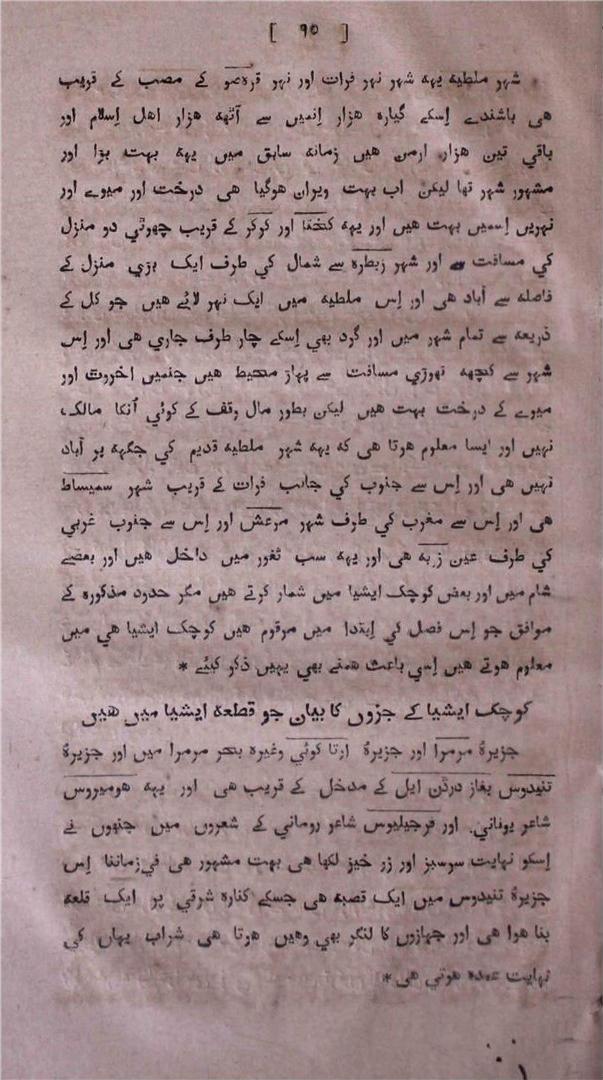 [ ٩٥ ]
شہر ملطیہ یہہ شہر نہر فرات اور نہر قرہ‌صو کے مصب کے قریب
ھی باشندے اِسکے گیارہ ھزار اِنمیں سے آٹھہ ھزار اھل اِسلام اور
باقي تین ھزار ارمن ھیں زمانہ سابق میں یہہ بہت بڑا اور
مشہور شہر تھا لیکن اب بہت ویران ھوگیا ھی درخت اور میوے اور
نہریں اِسمیں بہت ھیں اور یہہ کنختا اور کرکر کے قریب چھوٹي دو منزل
کي مسافت سے اور شہر زبطرہ سے شمال کي طرف ایک بڑي منزل کے
فاصلہ سے آباد ھی اور اِس ملطیہ میں ایک نہر لائے ھیں جو کل کے
ذریعہ سے تمام شہر میں اور گرد بھي اِسکے چار طرف جاري ھی اور اِس
شہر سے کچھہ تھوڑي مسافت سے پہاڑ محیط ھیں جنمیں اخروٹ اور
میوے کے درخت بہت ھیں لیکن بطور مال وقف کے کوئي اُنکا مالک
نہیں اور ایسا معلوم ھوتا ھی کہ یہہ شہر ملطیہ قدیم کي جگہہ پر آباد
نہیں ھی اور اِس سے جنوب کي جانب فرات کے قریب شہر سمیساط
ھی اور اِس سے مغرب کي طرف شہر مرعش اور اِس سے جنوب غربي
کي طرف عین زربہ ھی اور یہہ سب ثغور میں داخل ھیں اور بعضے
شام میں اور بعض کوچک ایشیا میں شمار کرتے ھیں مگر حدود مذکورہ کے
موافق جو اِس فصل کي اِبتدا میں مرقوم ھیں کوچک ایشیا ھي میں
معلوم ھوتے ھیں اِسي باعث ھمنے بھي یہیں ذکر کیئے *
کوچک ایشیا کے جزیروں کا بیان جو قطعہ ایشیا میں ھیں
جزیرۂ مرمرا اور جزیرۂ ارتا کوئي وغیرہ بحر مرمرا میں اور جزیرۂ
تنیدوس بغاز دردَن ایل کے مدخل کے قریب ھی اور یہہ ھومیروس
شاعر یوناني اور فرجیلیوس شاعر روماني کے شعروں میں جنھوں نے
اِسکو نہایت سرسبز اور زر خیز لکھا ھی بہت مشہور ھی في‌زماننا اِس
جزیرۂ تنیدوس میں ایک قصبہ ھی جسکے کنارہ شرقي پر ایک قلعہ
بنا ھوا ھی اور جہازوں کا لنگر بھي وھیں ھوتا ھی شراب یہاں کي
نہایت عمدہ ھوتي ھی *